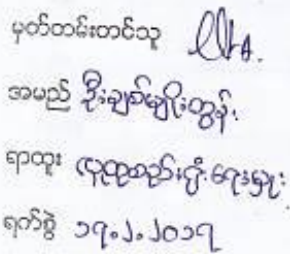 မှတ်တမ်းတင်သူ
အမည် ဦးချစ်မျိုးထွန်း
ရာထူး လူထုစည်းရုံးရေးမှူး
ရက်စွဲ ၁၇.၂.၂၀၁၇